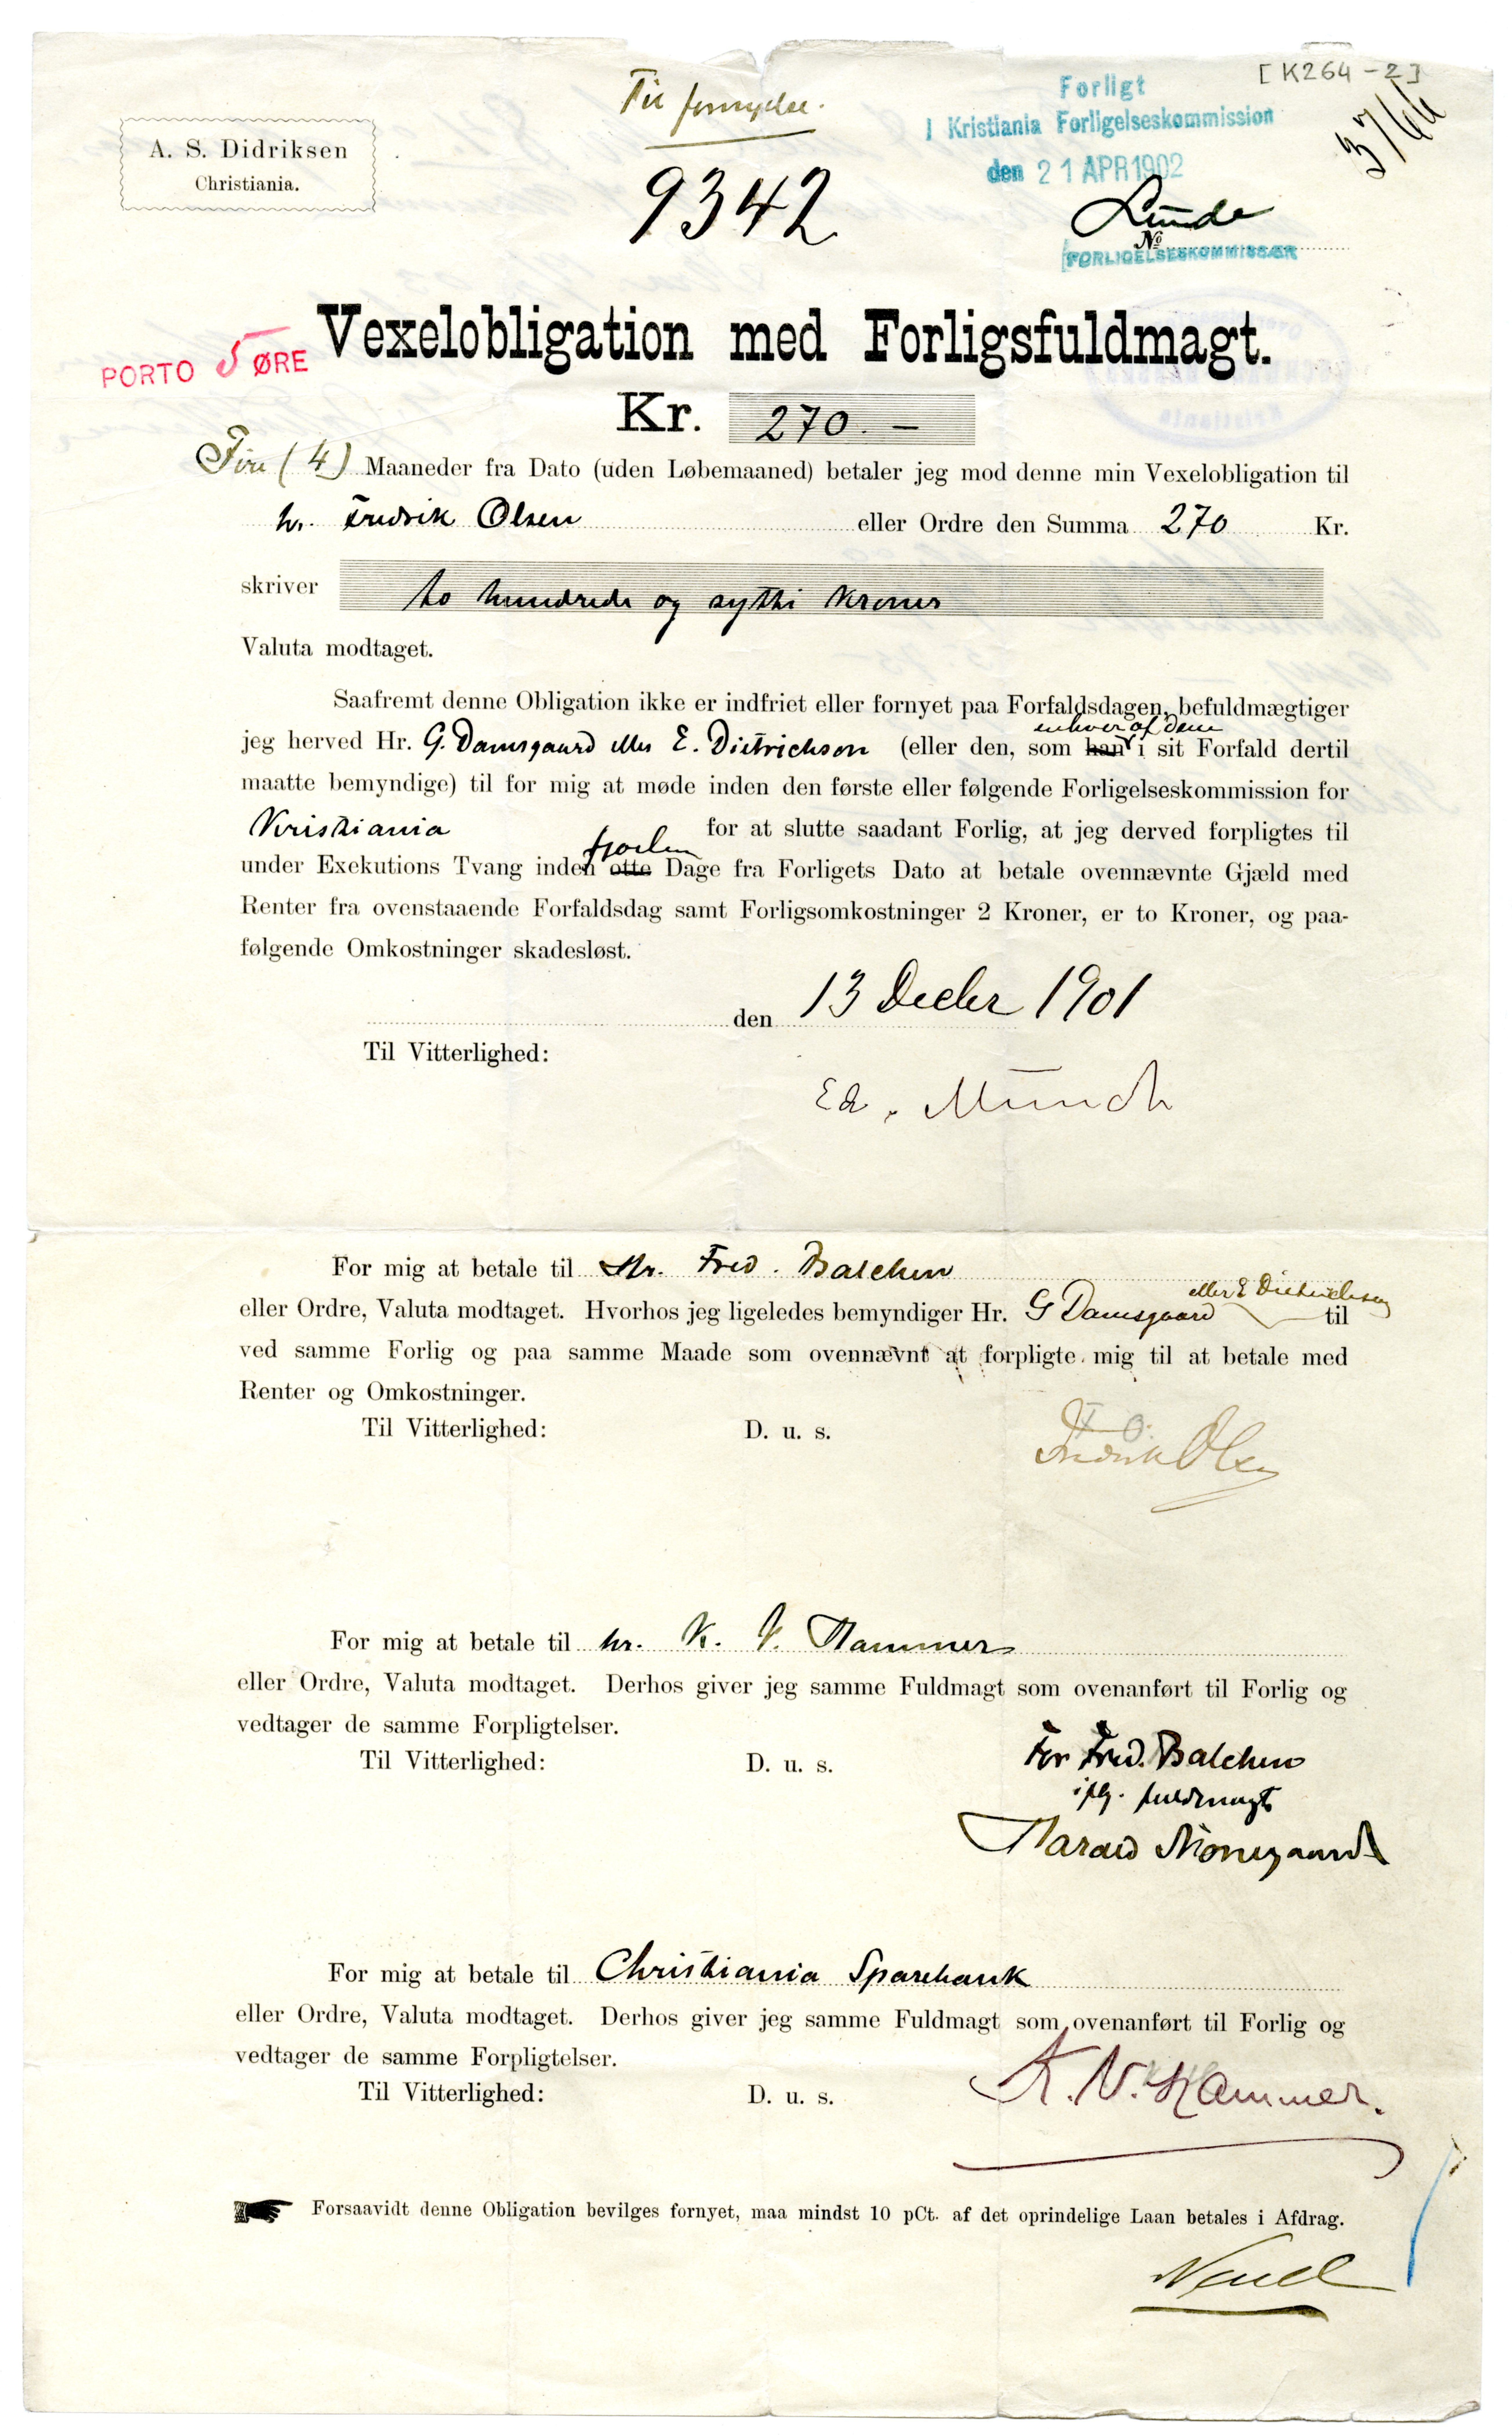 [K264-2]
3766
Til fornyelse.
A. S. Didriksen
Christiania.
Forligt
I Kristiania Forligelseskommission
den 21 APR 1902
9342
Lunde
No
FORLIGELSESKOMMISSÆR
Vexelobligation med Forligsfuldmagt.
PORTO 5 ØRE
Kr. 270.-
Fire (4) Maaneder fra Dato (uden Løbemaaned) betaler jeg mod denne min Vexelobligation til
hr. Fredrik Olsen eller Ordre den Summa 270 Kr.
skriver to hundrede og sytti Kroner
Valuta modtaget.
Saafremt denne Obligation ikke er indfriet eller fornyet paa Forfaldsdagen, befuldmægtiger
enhver af dem
jeg herved Hr. G. Damsgaard eller E. Dietrichson (eller den, som han i sit Forfald dertil
maatte bemyndige) til for mig at møde inden den første eller følgende Forligelseskommission for
Kristiania for at slutte saadant Forlig, at jeg derved forpligtes til
fjorten
under Exekutions Tvang inden otte Dage fra Forligets Dato at betale ovennævnte Gjæld med
Renter fra ovenstaaende Forfaldsdag samt Forligsomkostninger 2 Kroner, er to Kroner, og paa-
følgende Omkostninger skadesløst.
den 13 Decbr 1901
Til Vitterlighed:
Ed. Munch
For mig at betale til Hr. Fred. Balchen
eller E Dietrichson
eller Ordre, Valuta modtaget. Hvorhos jeg ligeledes bemyndiger Hr. G Damsgaard til
ved samme Forlig og paa samme Maade som ovennævnt at forpligte mig til at betale med
Renter og Omkostninger.
Til Vitterlighed: D. u. s.
Fredrik Olsen
For mig at betale til hr. K. V. Hammer
eller Ordre, Valuta modtaget. Derhos giver jeg samme Fuldmagt som ovenanført til Forlig og
vedtager de samme Forpligtelser.
Til Vitterlighed: D. u. s.
For Fred. Balchen
iflg. fuldmagt
Harald Nørregaard
For mig at betale til Christiania Sparebank
eller Ordre, Valuta modtaget. Derhos giver jeg samme Fuldmagt som ovenanført til Forlig og
vedtager de samme Forpligtelser.
Til Vitterlighed: D. u. s.
K. V. Hammer.
Forsaavidt denne Obligation bevilges fornyet, maa mindst 10 pCt. af det oprindelige Laan betales i Afdrag.